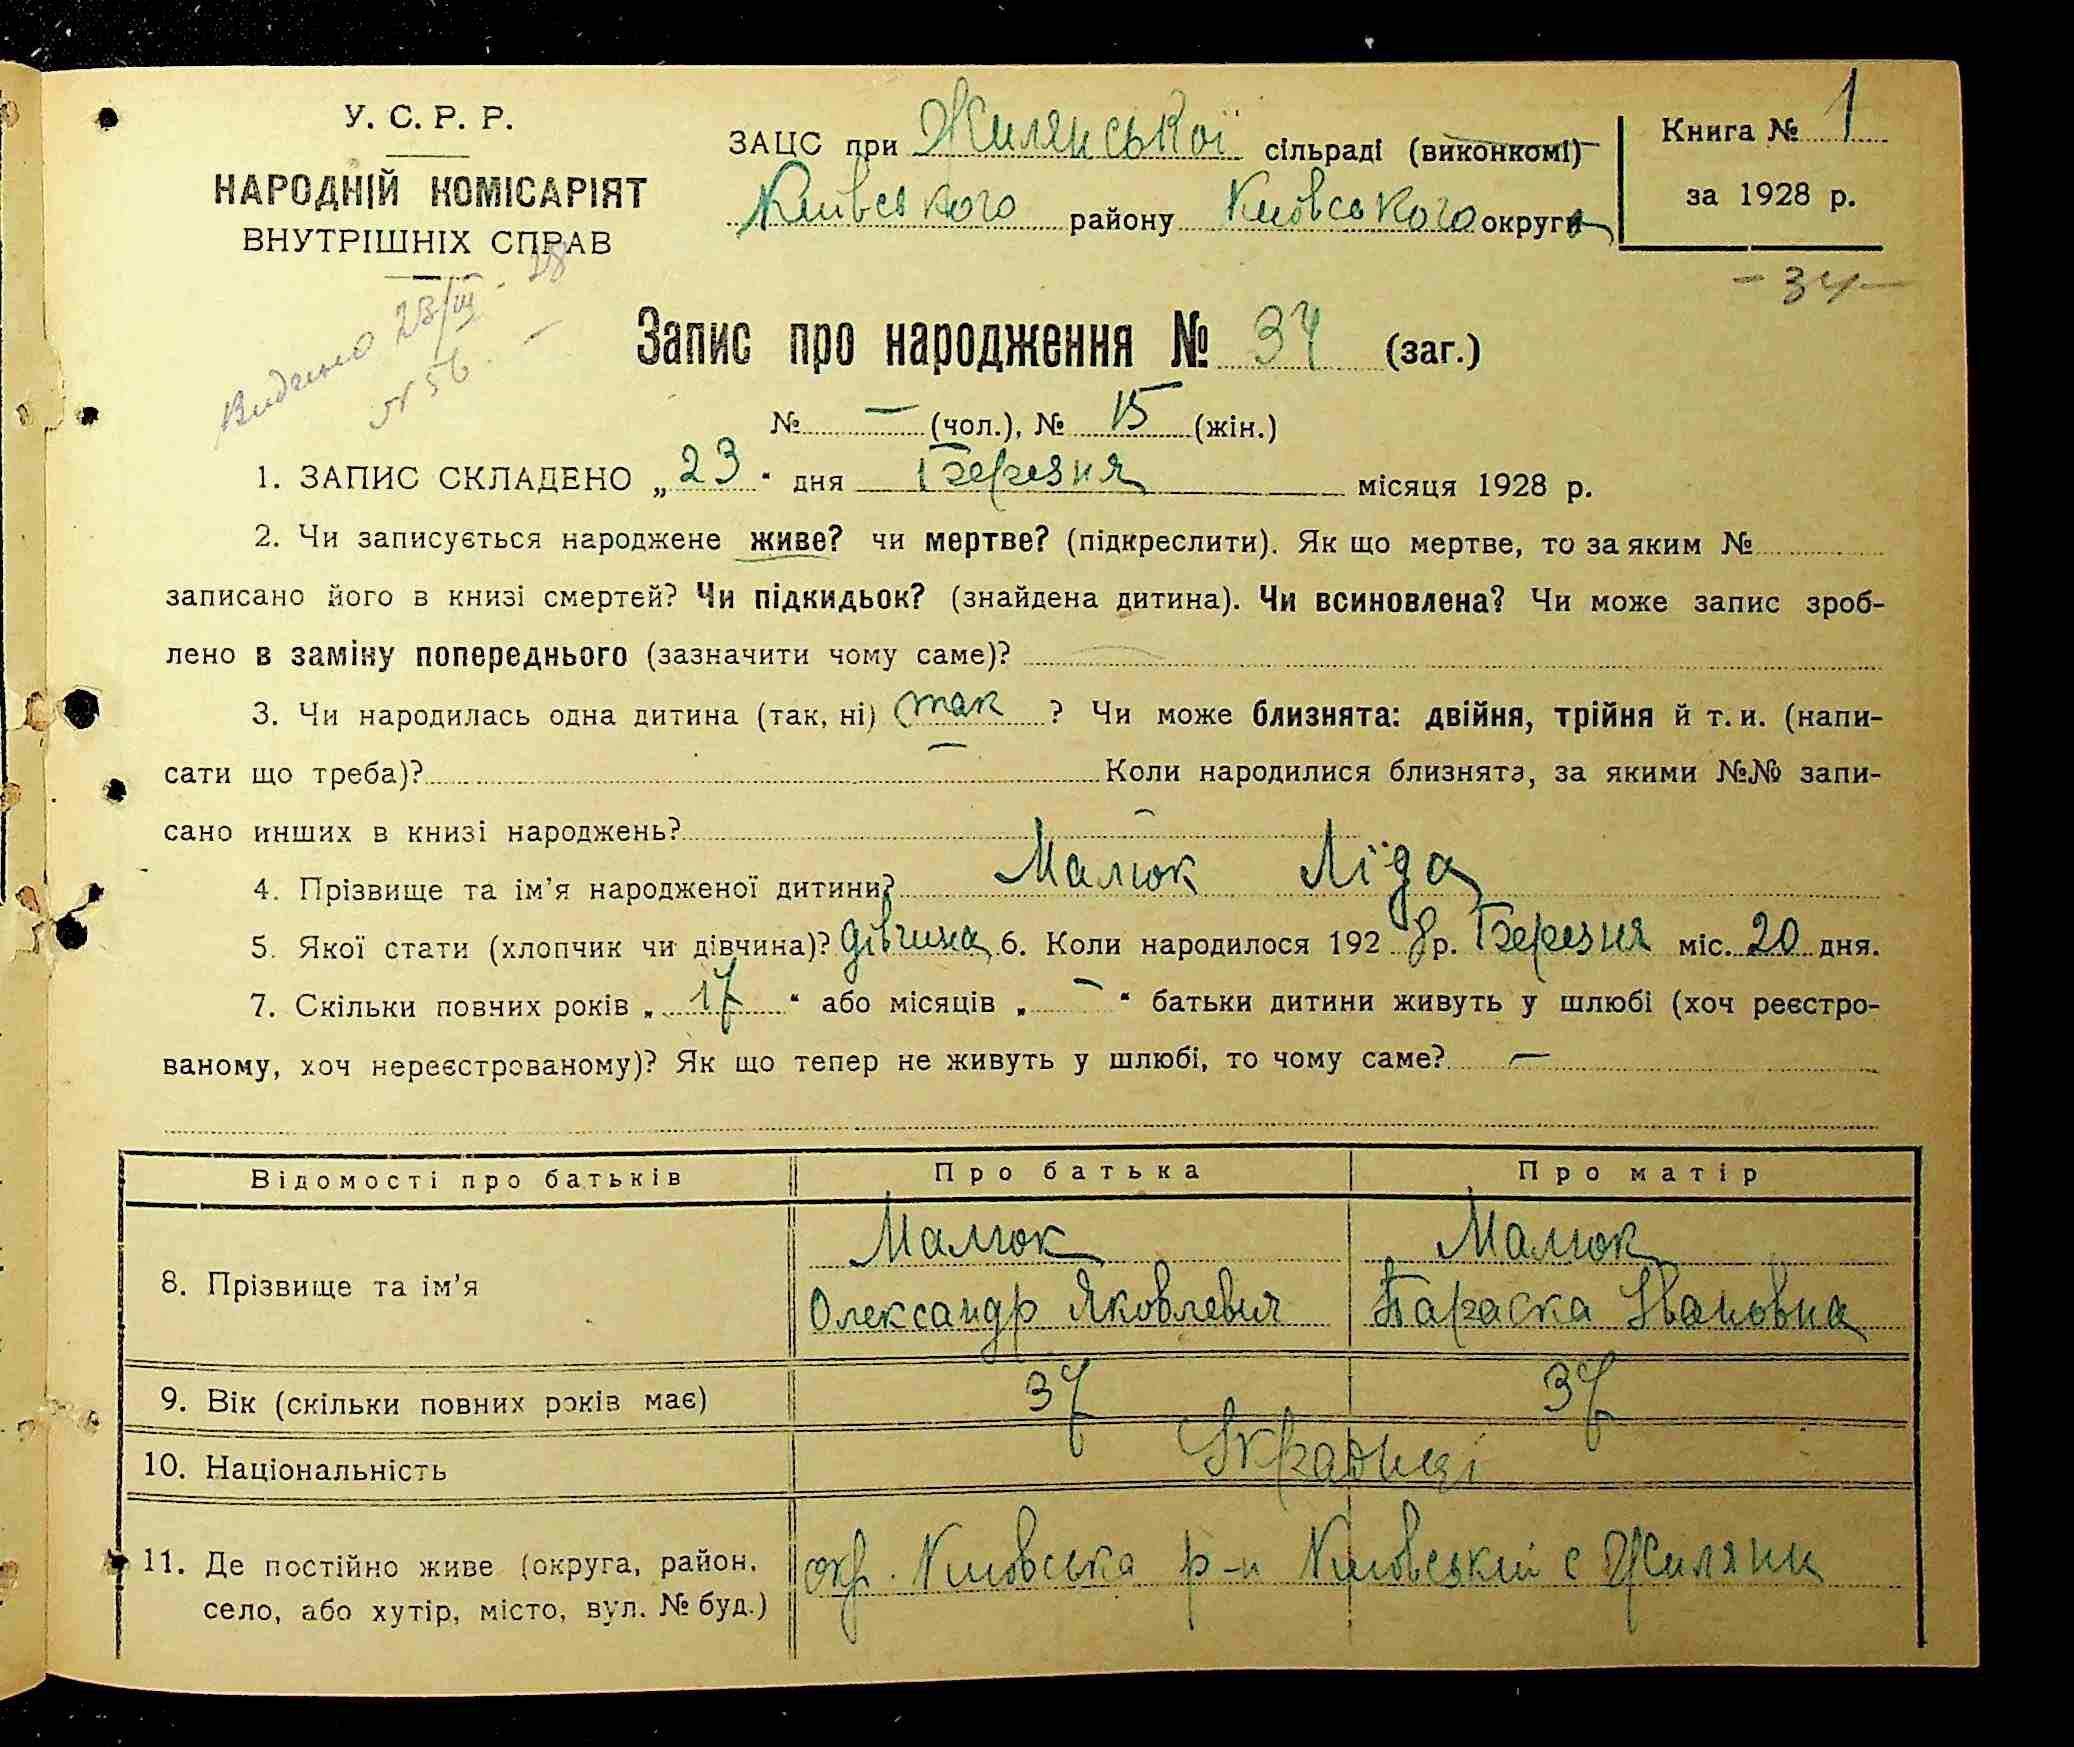 У. С. Р. Р.
НАРОДНІЙ КОМІСАРІЯТ
ВНУТРІШНІХ СПРАВ
Видано 23/III - 28
N 56. —
ЗАЦС при Жилянської сільраді (виконкомі)
Київського району Київського округи
Книга № 1
за 1928 р.
- 34 -
Запис про народження № 34 (заг.)
№ — (чол.), № 15 (жін.)
1. ЗАПИС СКЛАДЕНО „23“ дня Березня місяця 1928 р.
2. Чи записується народжене живе? чи мертве? (підкреслити). Як що мертве, то за яким №
записано його в книзі смертей? Чи підкидьок? (знайдена дитина). Чи всиновлена? Чи може запис зроб-
лено в заміну попереднього (зазначити чому саме)?
3. Чи народилась одна дитина (так, ні) так ? Чи може близнята: двійня, трійня й т. и. (напи-
сати що треба)? — Коли народилися близнята, за якими №№ запи-
сано инших в книзі народжень? —
4. Прізвище та ім'я народженої дитини? Малюк Ліда
5. Якої стати (хлопчик чи дівчина)? дівчина 6. Коли народилося 1928 р. Березня міс. 20 дня.
7. Скільки повних років „17“ або місяців „—“ батьки дитини живуть у шлюбі (хоч реєстро-
ваному, хоч нереєстрованому)? Як що тепер не живуть у шлюбі, то чому саме? —
Відомості про батьків Про батька Про матір
8. Прізвище та ім'я
Малюк
Олександр Яковлевич
Малюк
Параска Івановна
9. Вік (скільки повних років має) 37 37
10. Національність Українці
11. Де постійно живе (округа, район,
село, або хутір, місто, вул. № буд.)
окр. Київська р-н Київський с Жиляни